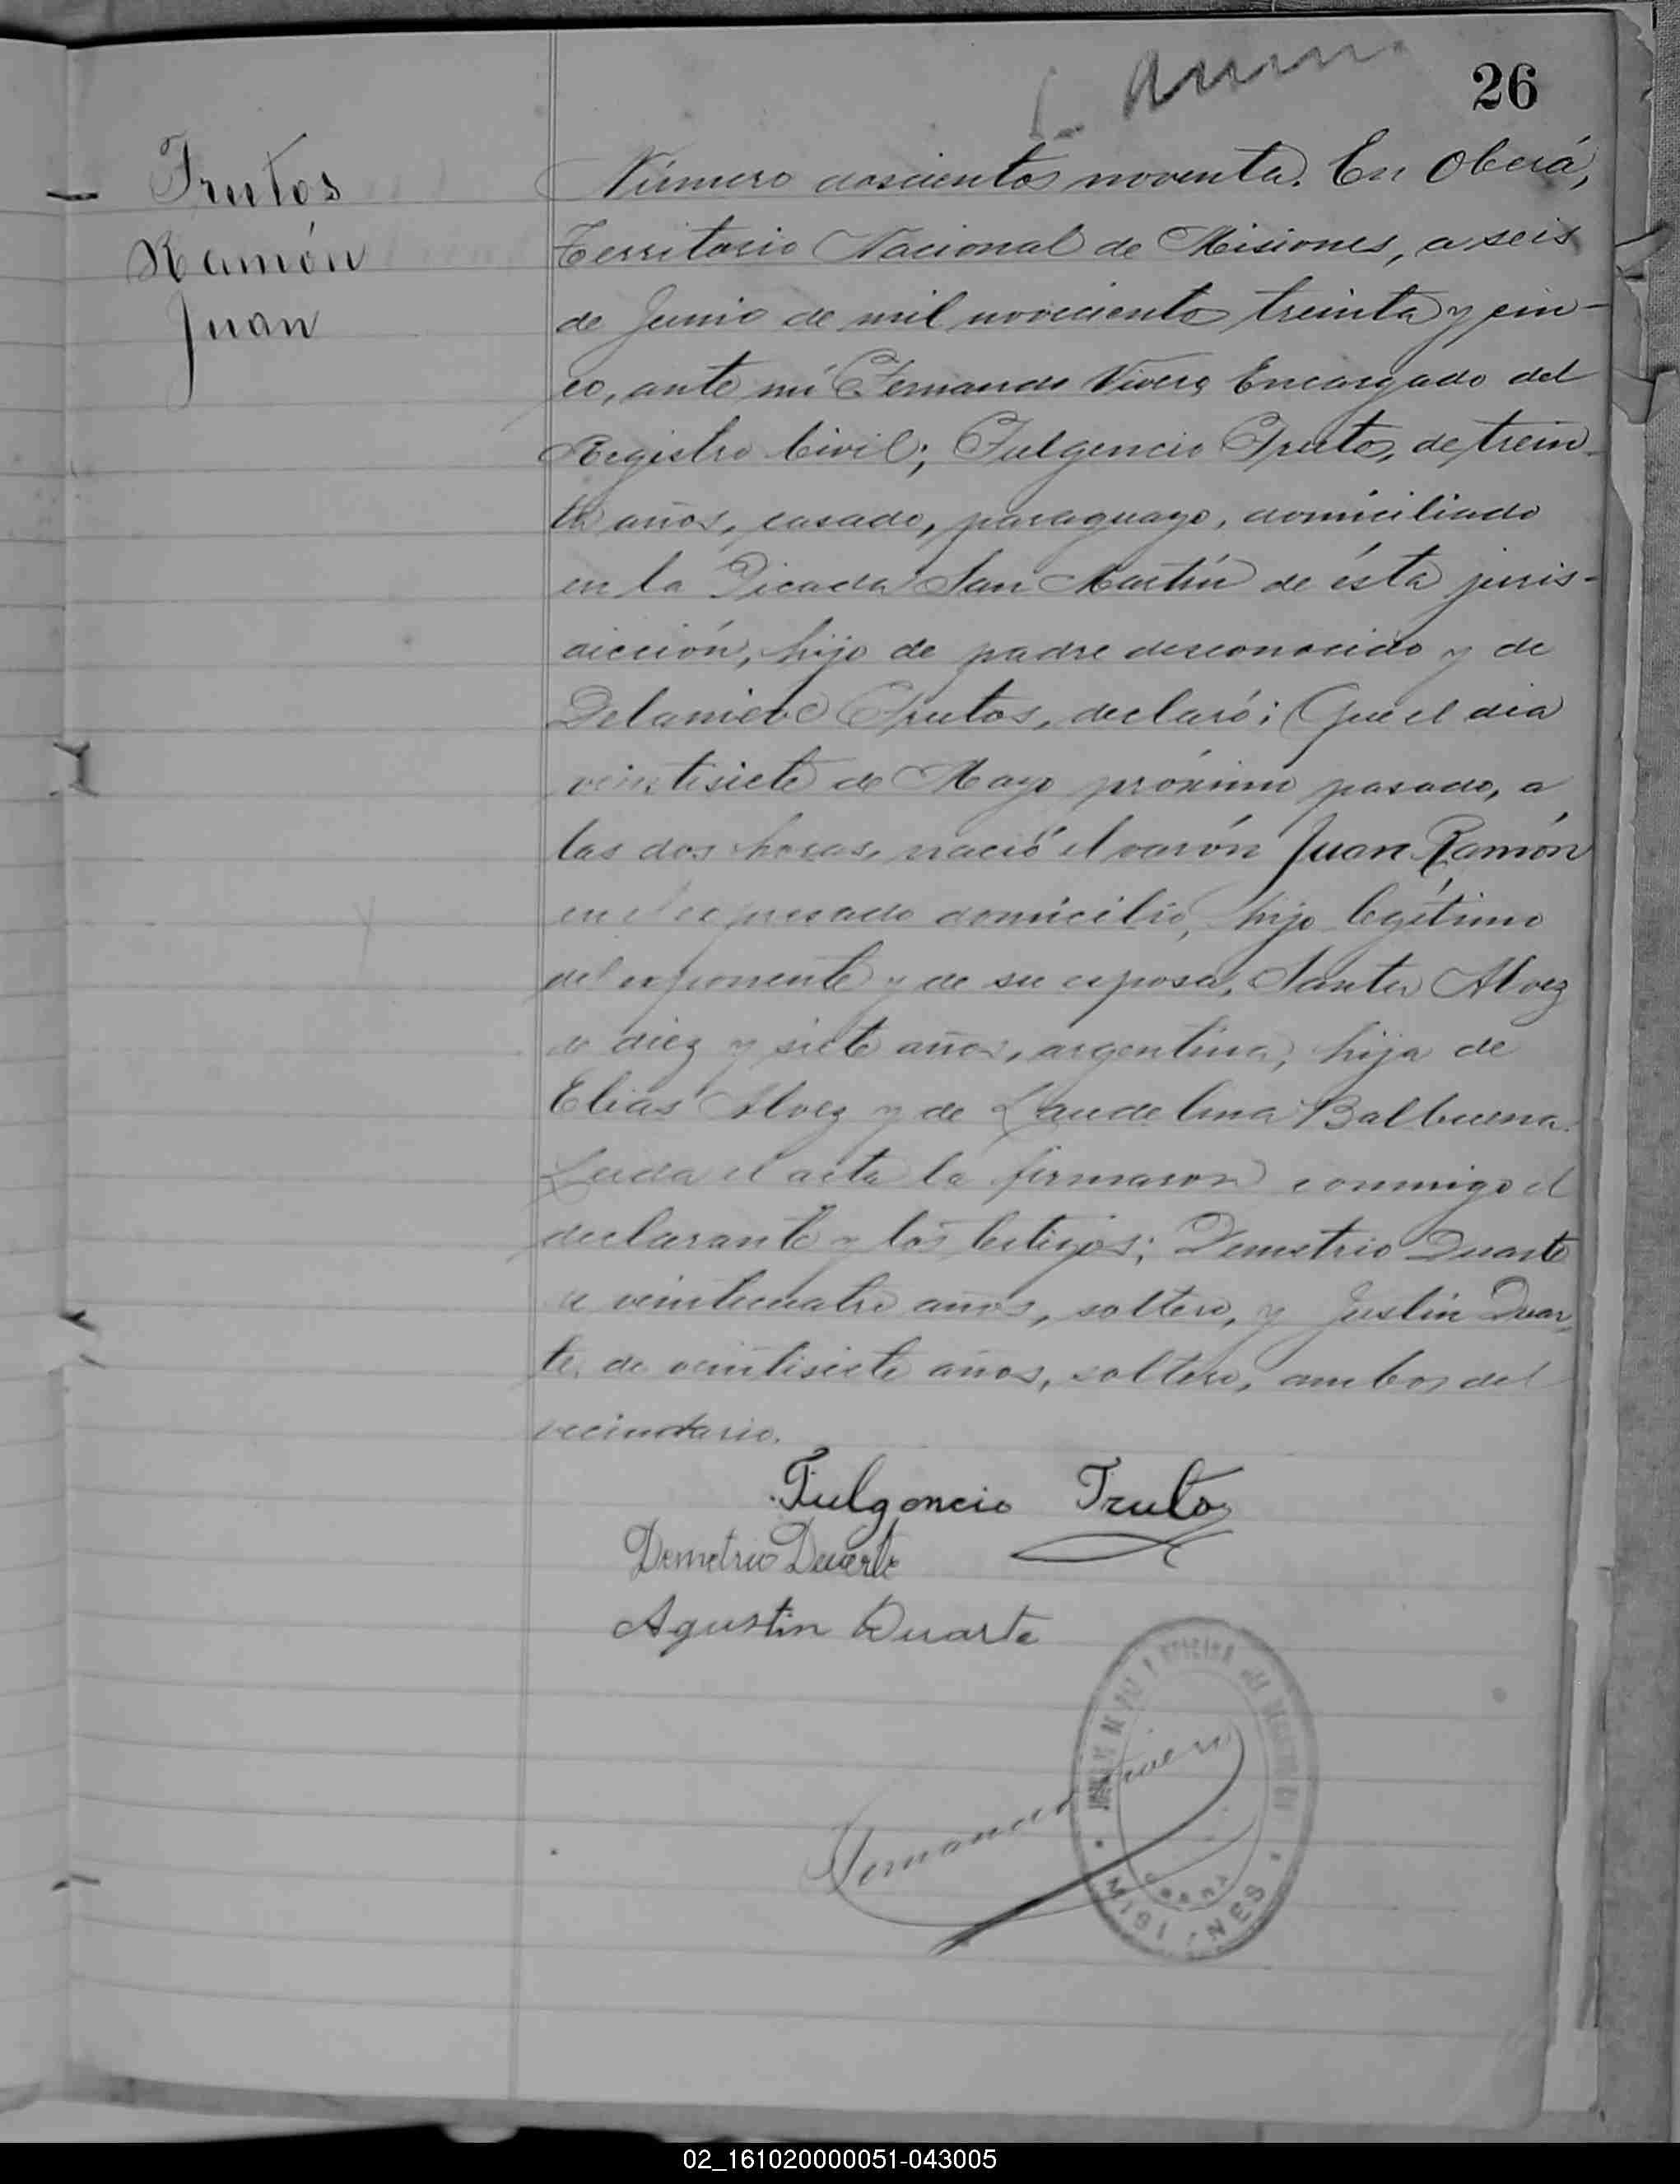 26
Frutos
Ramón
Juan
Número doscientos noventa. En Oberá,
Territorio Nacional de Misiones, a seis
de Junio de mil novecientos treinta y cin-
co, ante mí Fernando Vivero, Encargado del
Registro Civil; Fulgencio Frutos, de trein-
ta años, casado, paraguayo, domiciliado
en la Picada San Martín de ésta juris-
dicción, hijo de padre desconocido y de
Frutos, declaró: Que el dia
veintisiete de Mayo próximo pasado, a
las dos horas, nació el varón Juan Ramón
en el expresado domicilio, hijo legítimo
del exponente y de su esposa, Santa Alvez
de diez y siete años, argentina, hija de
Elias Alvez y de Laudelina Balbuena.
Leida el acta la firmaron conmigo el
declarante y los testigos; Demetrio Duarte
de veinticuatro años, soltero, y Justin Duar-
te, de veintisiete años, soltero, ambos del
vecindario.
Fulgencio Frutos
Demetrio Duarte
Agustin Duarte
Fernando Vivero
OBERA
MISIONES
02_161020000051-043005